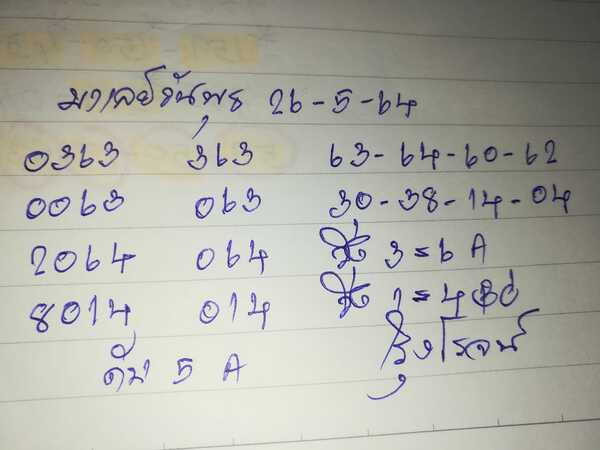 มาเลย์วันพุธ 26-5-64
0363 363 63-64-60-62
0063 063 30-38-14-04
2064 064 3=6 A
8014 014 1=4
ดับ 5 A รุ่งโรจน์